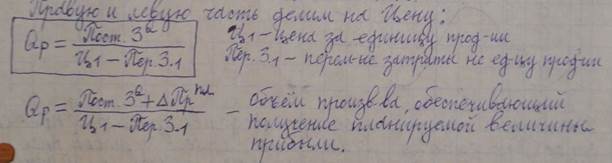 Правую и левую часть делим на Цену:
Qр = Пост. Зᵃ / Ц1 – Пер. З.1
Ц1 – цена за единицу прод-ии
Пер. З.1 – перем-ые затраты на ед-цу прод-ии
Qр = Пост. Зᵃ + Δ Пр ᵖˡ / Ц1 – Пер. З.1 – объём произв-ва, обеспечивающий
получение планируемой величины
прибыли.